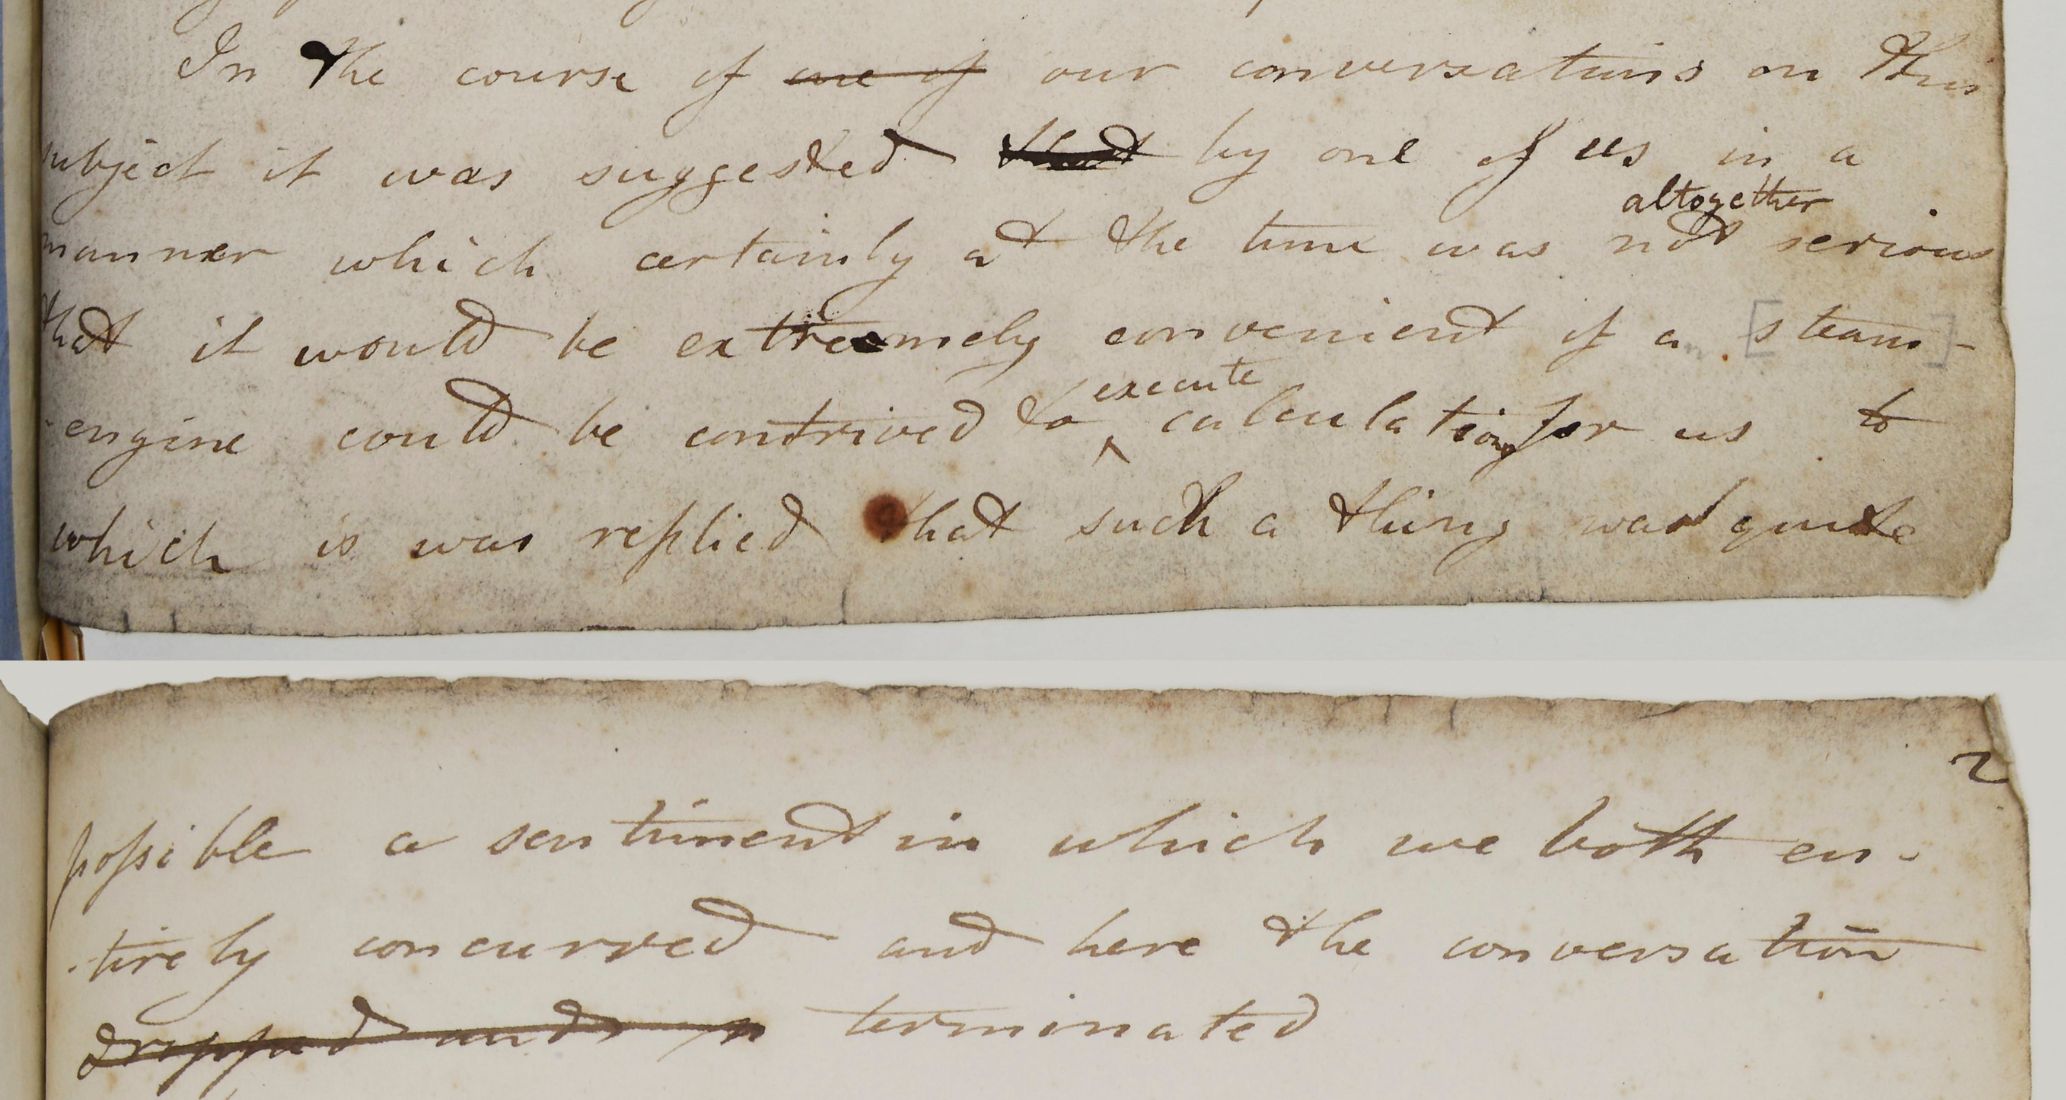 In the course of one of our conversations on this
subject it was suggested that by one of us in a
altogether
manner which certainly at the time was not serious
that it would be extreemely convenient if a [steam]-
execute
-engine could be contrived to ^ calculations for us to
which is was replied that such a thing was quite
2
possible a sentiment in which we both en-
-tirely concurred and here the conversation
dropped and terminated